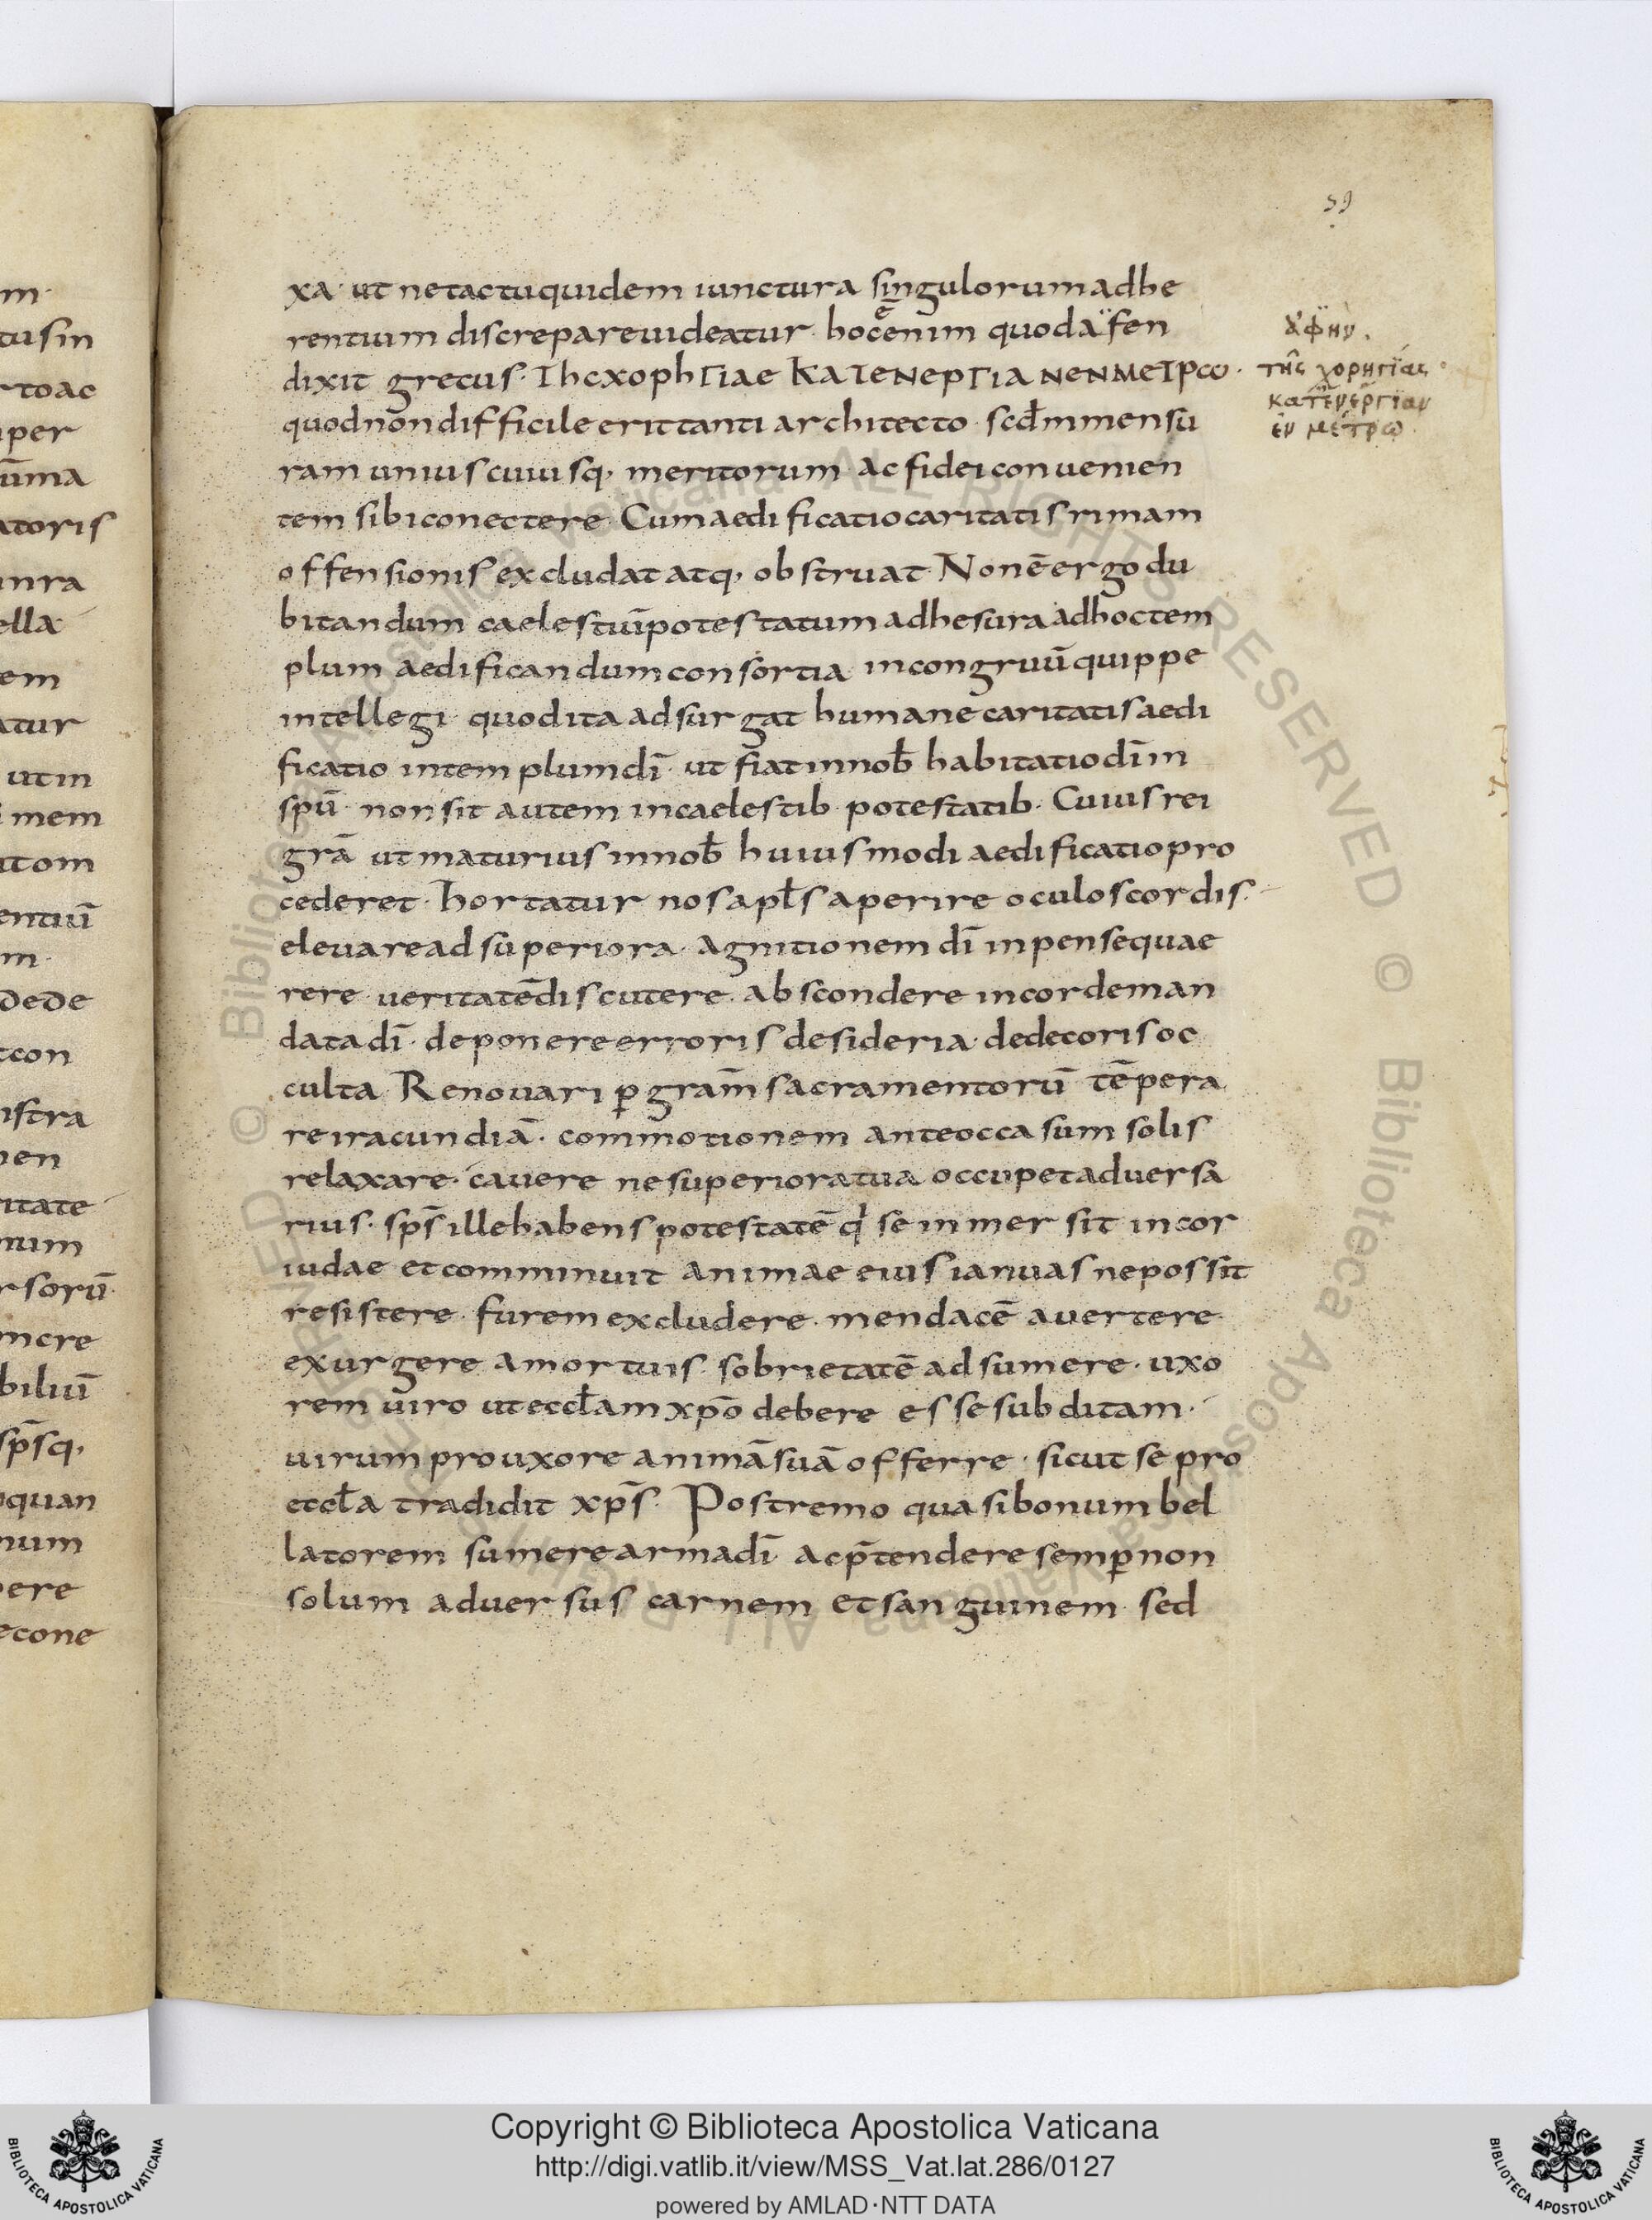 59
xa· ut netactuquidem iunctura singulorumadhe
rentium discrepareuideatur· hocenim quodafen
dixit grecus· ΤhcxophΓiae KaΤeNepΓia NeNMeΤpω·
quodnōndifficile erittanti architecto· scdm̄mensu
ram uniuscuiusq, meritorum ac fideiconuenien
tem sibiconectere· Cumaedificatiocaritatis rimam
offensionis excludat atq, obstruat· Nonē ergo du
bitandum caelestiūpotestatum adhesura adhoctem
plum aedificandumconsortia incongruū quippe
intellegi· quodita adsurgat humane caritatis aedi
ficatio intemplumdī· ut fiatinnob̄ habitatiodī in
spū· non sit autem incaelestib· potestatib· Cuius rei
grā ut maturius innob̄ huiusmodi aedificatiopro
cederet· hortatur nos apl̄s aperire oculoscordis·
eleuaread superiora· agnitionem dī inpensequae
rere· ueritatēdiscutere· abscondere incordeman
datadī· deponereerroris desideria· dedecorisoc
culta· Renouari ꝑ gram̄ sacramentorū tēpera
reiracundiā· commotionem anteoccasum solis
relaxare· cauere nesuperioratua occupetaduersa
rius· sps̄ illehabens potestatē q̇ se inmersit incor
iudae etcomminuit animae eius ianuas nepossit
resistere· furemexcludere· mendacē auertere·
exurgere amortuis· sobrietatē adsumere· uxo
rem uiro uteccl̄am xpō debere essesubditam·
uirum prouxore animā suā offerre· sicut se pro
eccl̄a tradidit xps̄· Postremo quasibonumbel
latorem sumerearmadī· acp̄tendere semꝑnon
solum aduersus carnem etsanguinem· sed
ἁφην.
τῆς χορηγίας
κατ' ἐνέργϊαν
ἐν μέτρω
m·
tusin
rtoac
per
ūma
atoris
inra
ella
em
atur
utin
mem
utom
entiū
m·
dede
tcon
istra
nen
ritate
num
rsorū·
incre
biliū
sps̄q,
quan
num
ere
econe
Copyright © Biblioteca Apostolica Vaticana
http://digi.vatlib.it/view/MSS_Vat.lat.286/0127
powered by AMLAD·NTT DATA
BIBLIOTECA APOSTOLICA VATICANA
BIBLIOTECA APOSTOLICA VATICANA
© Biblioteca Apostolica Vaticana ALL RIGHTS RESERVED © Biblioteca Apostolica Vaticana ALL RIGHTS RESERVED